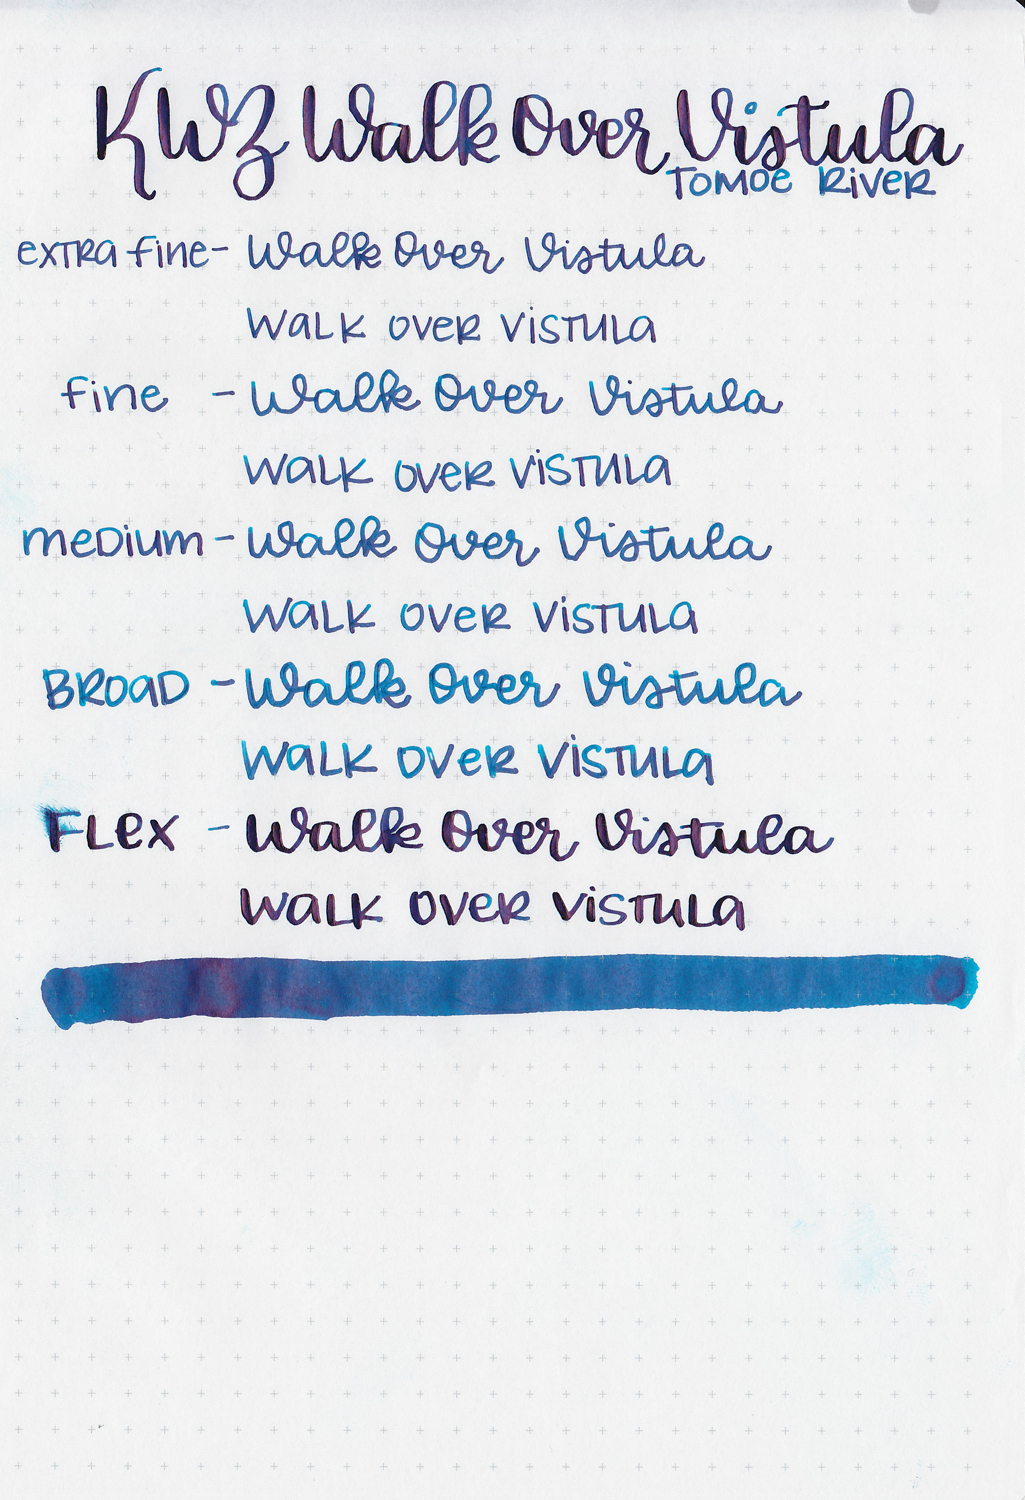 KWZ Walk Over Vistula
Tomoe River
extra fine - Walk Over Vistula
Walk Over Vistula
fine - Walk Over Vistula
Walk Over Vistula
medium - Walk Over Vistula
Walk Over Vistula
Broad - Walk Over Vistula
Walk Over Vistula
Flex - Walk Over Vistula
Walk Over Vistula